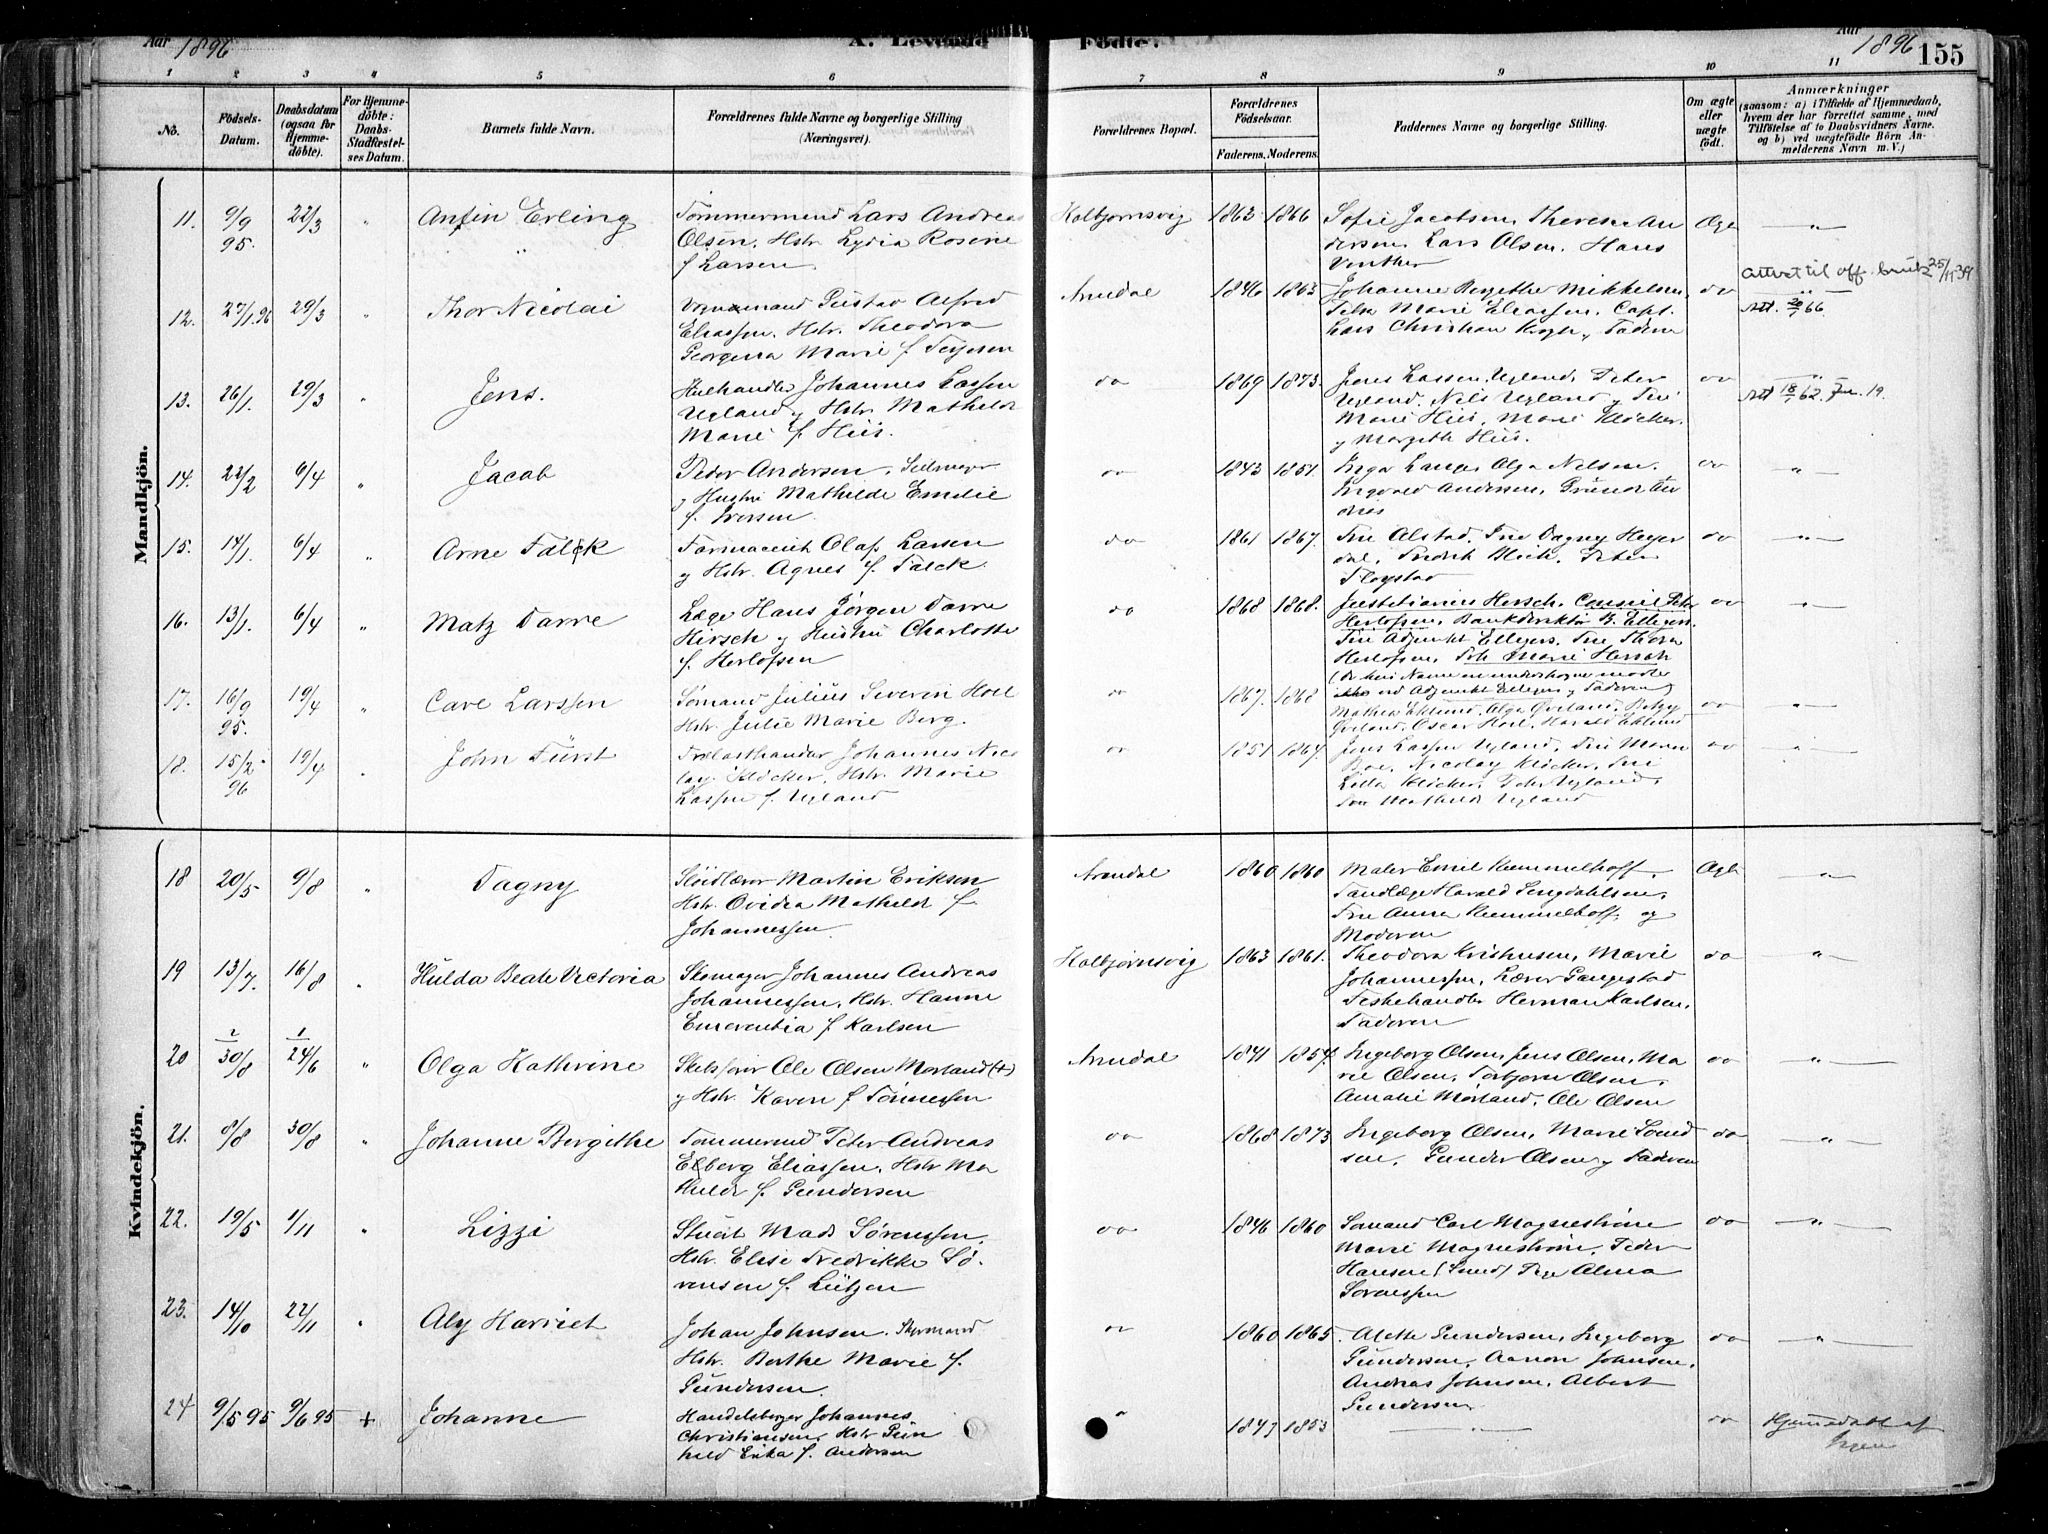 Aar 1896
A. Levende Födte.
Aar 1896
155
1 2 3 4 5 6 7 8 9 10 11
No.
Födsels-
Datum.
Daabsdatum
(ogsaa for
Hjemme-
döbte).
For Hjemme-
döbte:
Daabs-
Stadfæstel-
ses Datum.
Barnets fulde Navn.
Forældrenes fulde Navne og borgerlige Stilling
(Næringsvei).
Forældrenes Bopæl.
Forældrenes
Födselsaar.
Faderens. Moderens.
Faddernes Navne og borgerlige Stilling.
Om ægte
eller
uægte
födt.
Anmærkninger
(saasom: a) i Tilfælde af Hjemmedaab,
hvem der har forrettet samme, med
Tilföielse af to Daabsvidners Navne.
og b) ved uægtefödte Börn An-
melderens Navn m. V.)
Mandkjön.
11. 9/9 95. 22/3 " Anfin Erling
Tømmermand Lars Andreas
Olsen, Hstr. Lydia Rosine
f. Larsen
Kolbjørnsvig 1863 1866
Sofie Jacobsen, Therese An
dersen, Lars Olsen, Hans
Vinther
Ægte
"
12. 27/1.96 29/3 " Thor Nicolai
Gustav Alfred
Eliassen, Hstr. Theodora
Georgina Marie f. Terjesen
Arendal 1846 1863
Johanne Birgithe Mikkelsen,
Marie Eliassen, Capt.
Lars Christian Krogh, Faderen
do
Attest til off. bruk 25/11 39
Att. 20/1 66.
13. 26/1. 29/3 " Jens.
Johannes Lassen
Ugland og Hstr. Mathilde
Marie f. Hiis.
do 1869 1873.
Jens Lassen Ugland, Peter
Ugland, Nils Ugland, Frk
Marie Hiis, Marie Kløcker
og Margith Hiis.
do
"
Att 18/1 62. 19.
14. 22/2 6/4 " Jacob
Peder Andersen, Seilmager
og Hustru Mathilde Emilie
f. Iversen
do 1843 1851.
Inga Lange, Olga Nilsen,
Ingvald Andersen,
do
"
15. 14/1. 6/4 " Arne Falck
Farmaceut Olaf Larsen
og Hstr. Agnes f. Falck.
do 1861 1867.
Fru Alstad, Frk Dagny Heyer
dal, Fredrik Bleck, Peter
Fløystad
do
"
16. 13/1. 6/4 " Matz Darre
Læge Hans Jørgen Darre
Hirsch og Hustru Charlotte
f. Herlofsen
do 1868 1868.
Justitiarius Hirsch, Consul Peter
Herlofsen, Bankdirektør B. Ellegers.
Fru Adjunkt Ellegers, Fru Thora
Herlofsen, Frk Marie Hirsch
(De hvis Navne er understregne mødte
ikke ved Adjunkt Ellegers og Faderen)
do
"
17. 16/9 95. 19/4 " Carl Larssen
Sømand Julius Severin Holl
Hstr. Julie Marie Berg.
do 1867. 1868
Mathea Eklund, Olga Qveland, Betzy
Qveland, Oscar Holl, Harald Eklund
do
"
18. 15/2 96 19/4 " John Fürst
Trælasthandler Johannes Nico
lay Kløcker, Hstr. Marie
Lassen f. Ugland
do 1851 1864.
Jens Lassen Ugland, Fru Maren
Boe, Nicolay Kløcker, Frk
Lilla Kløcker, Peter Ugland,
Fru Mathilde Ugland
do
"
Kvindekjön.
18 20/5 9/8 " Dagny
Sløidlærer Martin Eriksen
Hstr. Ovidia Mathilde f.
Johannessen
Arendal 1860 1860
Maler Emil Kummelhoff,
Tandlæge Harald Lingdahlsen,
Fru Anna Kummelhoff og
Moderen
Ægte
"
19 13/7. 16/8 " Hulda Beate Victoria
Skomager Johannes Andreas
Johannessen, Hstr. Hanne
Emerentia f. Karlsen
Kolbjørnsvig 1863 1861.
Theodora Kristensen, Marie
Johannessen, Lærer Gangestad
Fiskehandler Herman Karlsen,
Faderen
do
"
20 2/30/8 1/24/6 " Olga Kathrine
Skibsfører Ole Olsen Mørland (+)
og Hstr. Karen f. Tønnessen
Arendal 1841 1854.
Ingeborg Olsen, Jens Olsen, Ma
rie Olsen, Torbjørn Olsen,
Amalie Mørland, Ole Olsen
do
"
21. 8/8 30/8 " Johanne Bergithe
Tømmermd Peter Andreas
Elberg Eliassen, Hstr. Ma
thilde f. Gundersen
do 1868 1873
Ingeborg Olsen, Marie Lund
sen, Gunder Olsen og Faderen
do
"
22. 19/5 1/11 " Lizzi
Stuert Mads Sørenssen,
Hstr. Elise Fredrikke Sø-
rensen f. Lützen
do 1846 1860
Sømand Carl Magnestrøm
Marie Magnestrøm, Peder
Hansen (Smed) Pige Alma
Sørenssen
do
"
23. 14/10 22/11 " Aly Harriet
Johan Johnsen, Styrmand
Hstr. Berthe Marie f.
Gundersen.
do 1860 1865.
Alette Gundersen, Ingeborg
Gundersen, Aanon Johnsen,
Andreas Johnsen, Albert
Gundersen
do
"
24 9/5 95 9/6 95 + Johanne
Handelsborger Johannes
Christiansen, Hstr. Gun
hild Erika f. Andersen
" 1843 1853
"
do
Hjemmedøbt af